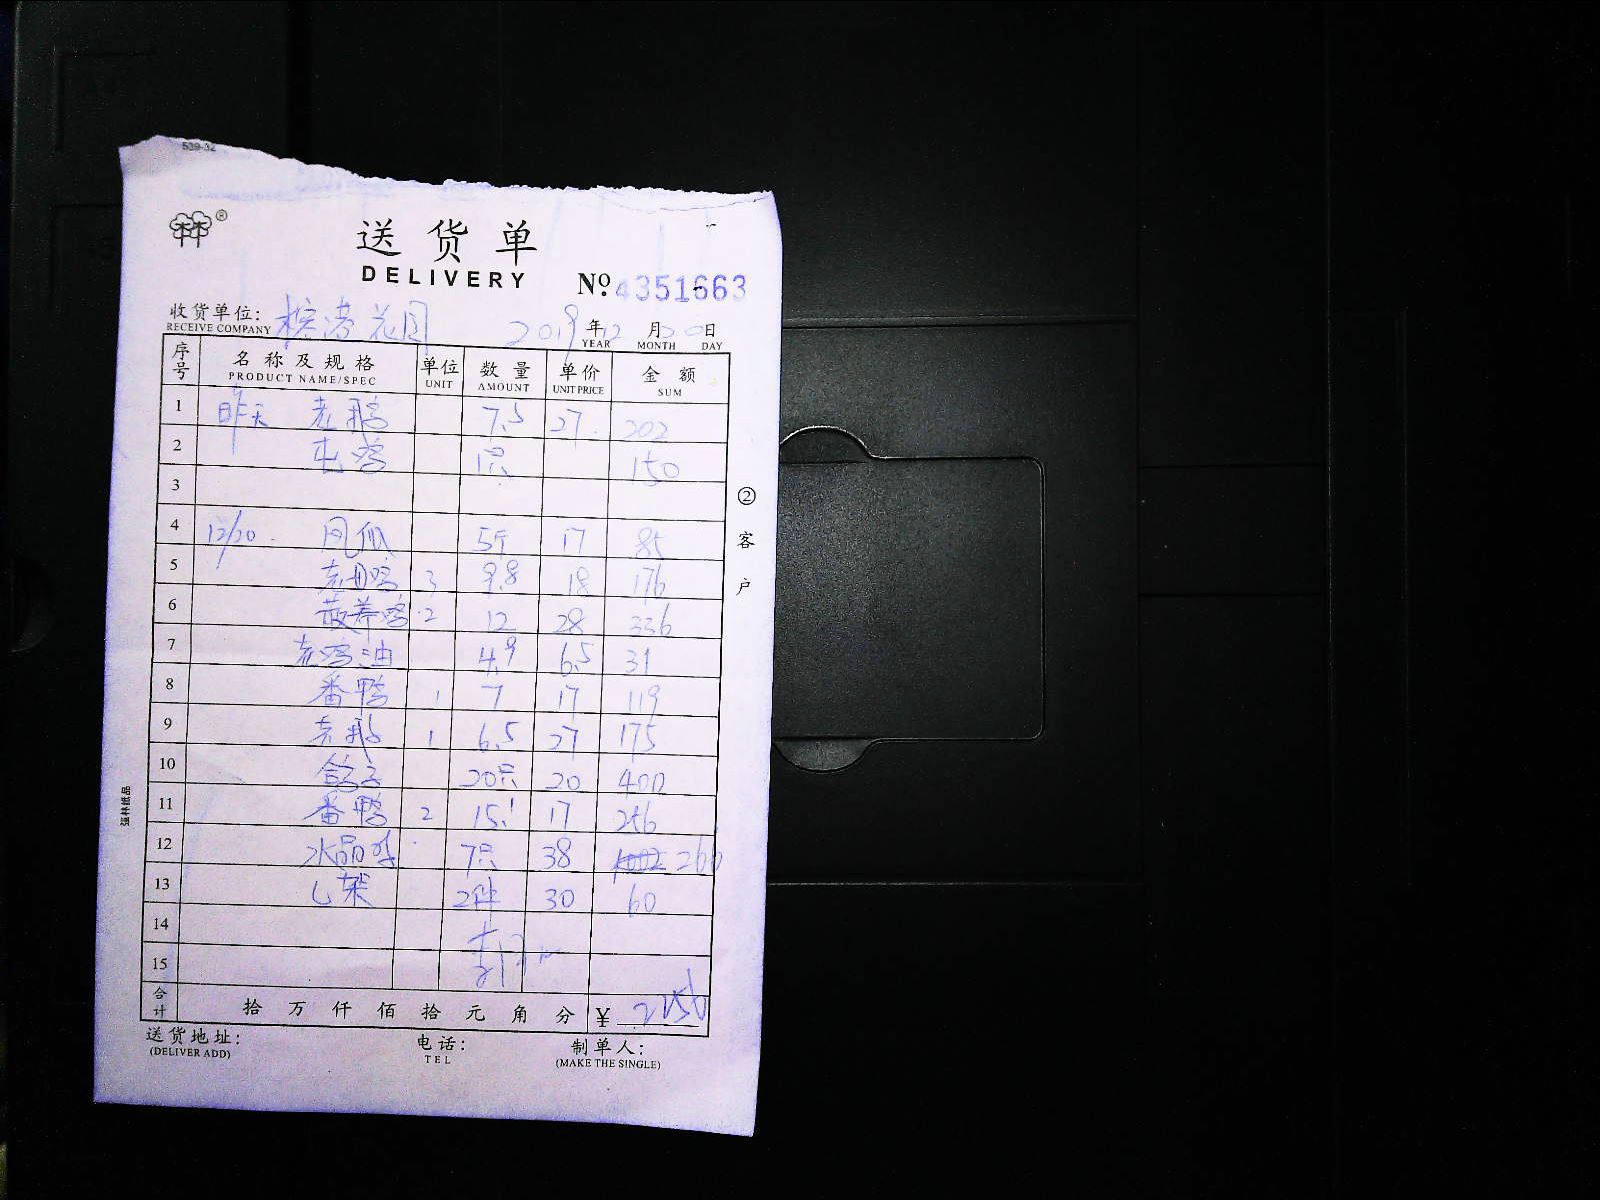 539-32
®
送货单
DELIVERY
№ 4351663
收货单位: 花园 2019年12月20日
RECEIVE COMPANY YEAR MONTH DAY
序号 名称及规格 单位 数量 单价 金额
PRODUCT NAME/SPEC UNIT AMOUNT UNIT PRICE SUM
1 昨天 老鹅 7.5 27. 202
2 鸡 1只 150
3
4 12/20. 凤爪 5斤 17 85
5 老母鸡 3 9.8 18 176
6 散养鸡 2 12 28 336
7 老鸡油 4.9 6.5 31
8 番鸭 1 7 17 119
9 老鹅 1 6.5 27 175
10 鸽子 20只 20 400
11 番鸭 2 15.1 17 256
12 水晶 7只 38 266
13 2件 30 60
14
15
合计 拾 万 仟 佰 拾 元 角 分 ¥ 2256
送货地址: 电话: 制单人:
(DELIVER ADD) TEL (MAKE THE SINGLE)
②客户
强林纸品